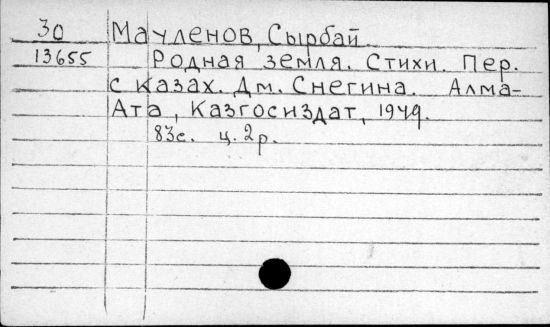 30 Мауленов, Сырбай
13655 Родная земля. Стихи. Пер.
с казах. Дм. Снегина. Алма-
Ата, Казгосиздат, 1949.
83с. ц. 2р.